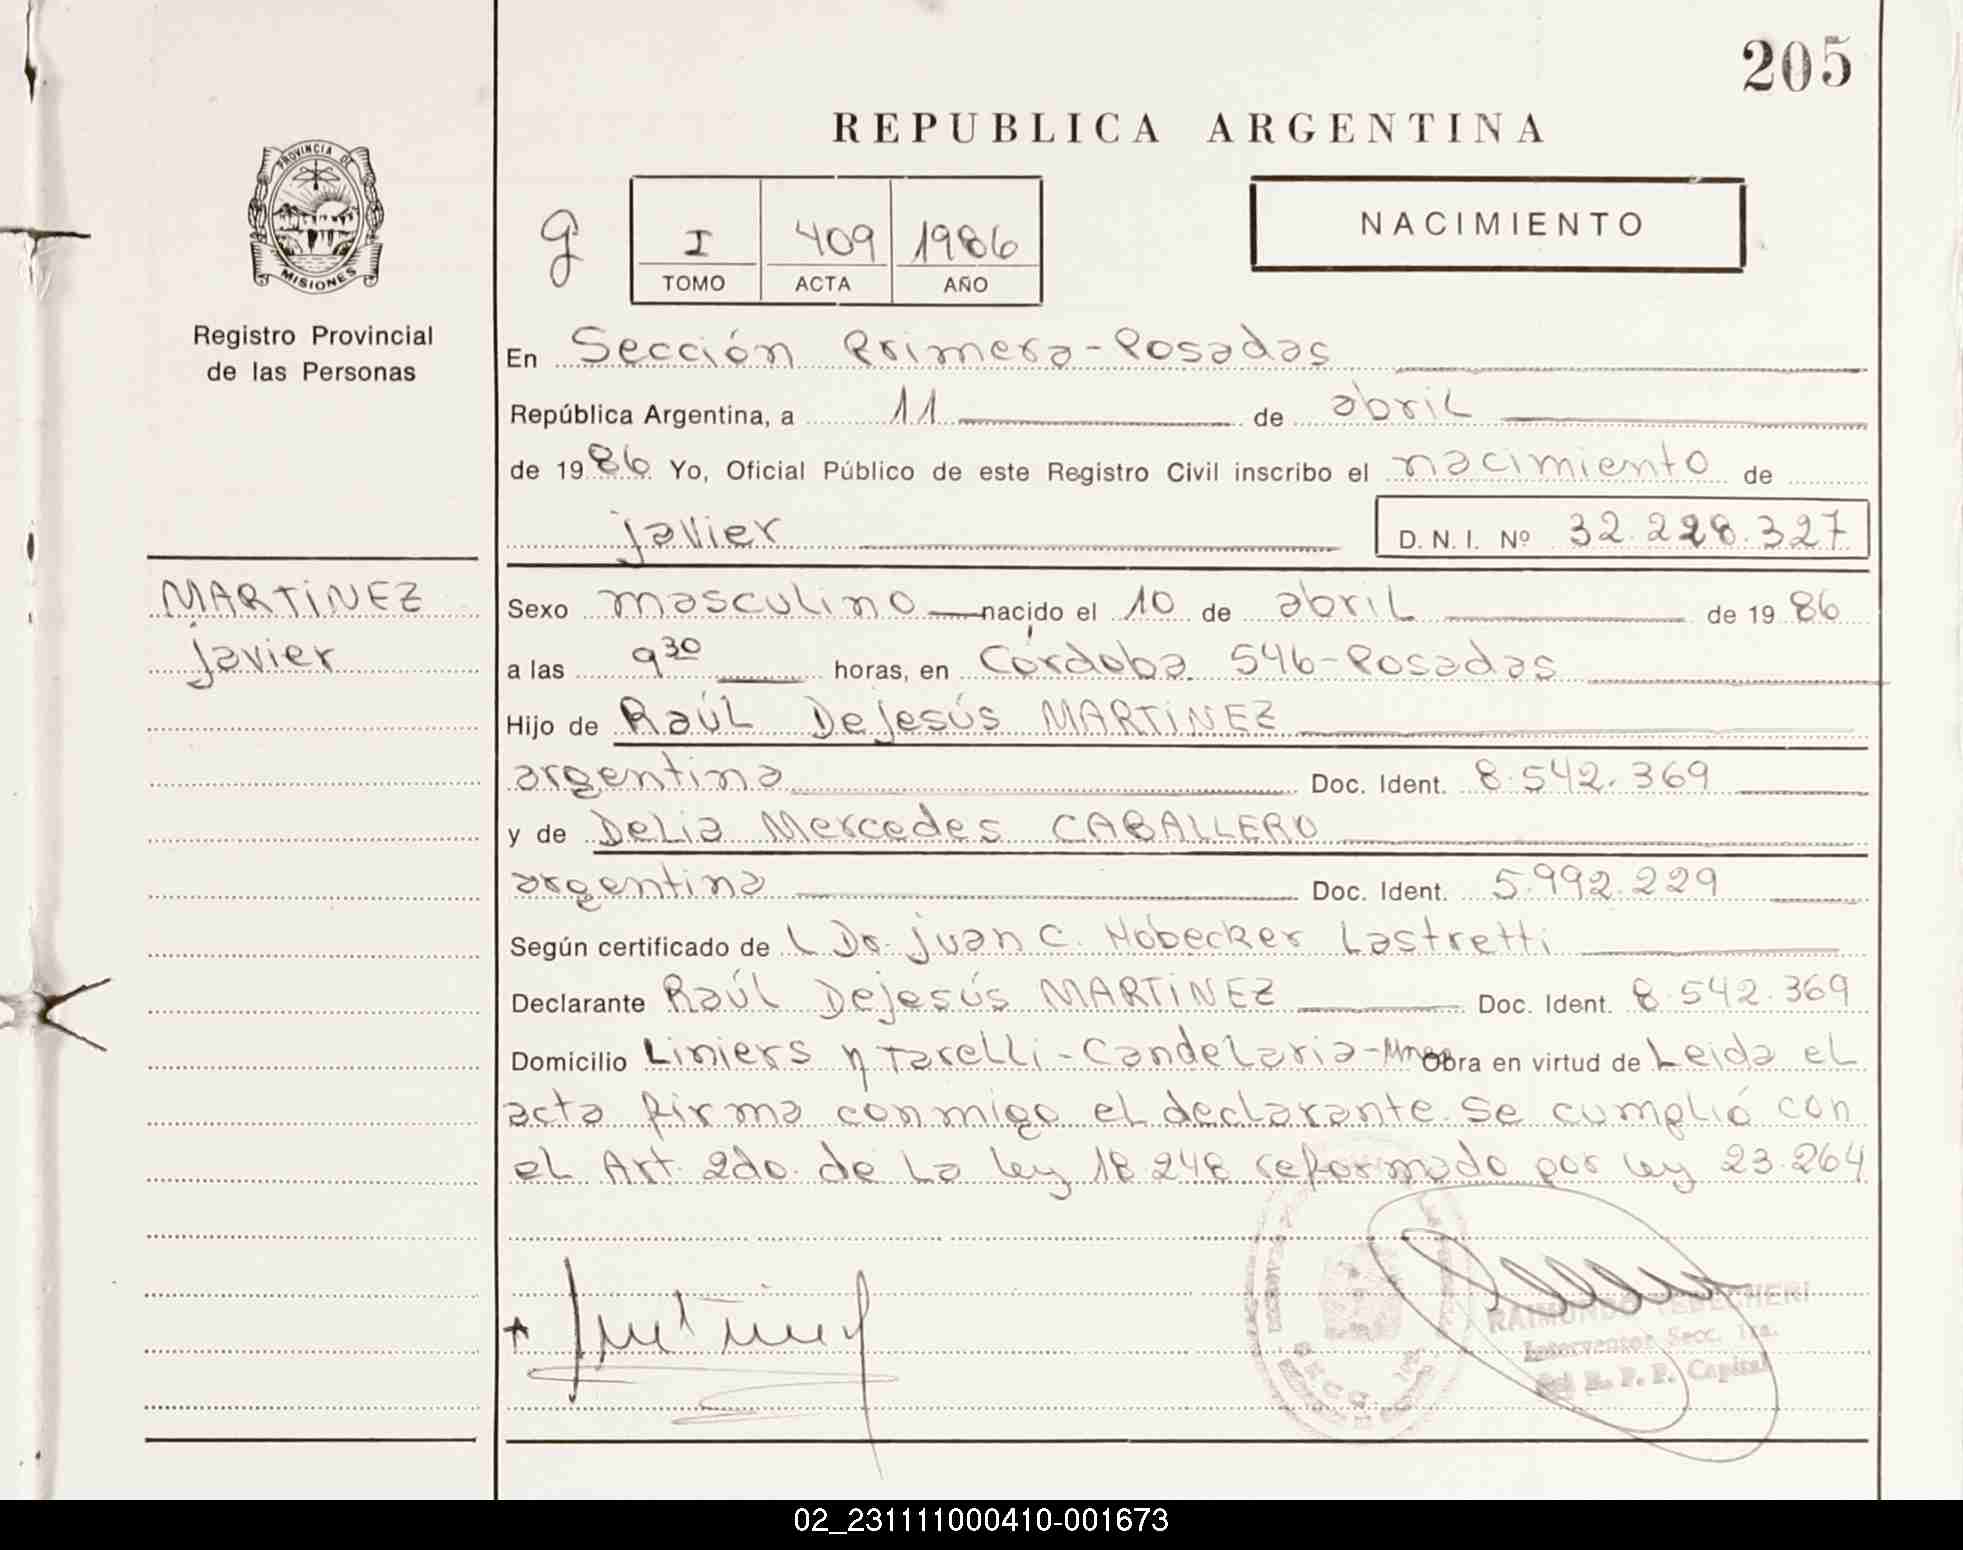 205
REPUBLICA ARGENTINA
PROVINCIA DE
MISIONES
Registro Provincial
de las Personas
g
I 409 1986
TOMO ACTA AÑO
NACIMIENTO
En Sección Primera-Posadas
República Argentina, a 11 de abril
de 1986 Yo, Oficial Público de este Registro Civil inscribo el nacimiento de
javier D. N. I. Nº 32.228.327
MARTINEZ
javier
Sexo masculino nacido el 10 de abril de 1986
a las 9 30 horas, en Córdoba 546-Posadas
Hijo de Raúl Dejesús MARTINEZ
argentina Doc. Ident. 8.542.369
y de Delia Mercedes CABALLERO
argentina Doc. Ident. 5.992.229
Según certificado de L Dr. juan C. Hobecker Lastretti
Declarante Raúl Dejesús MARTINEZ Doc. Ident. 8.542.369
Domicilio Liniers y Tarelli-Candelaria-Mnes Obra en virtud de Leida el
acta firma conmigo el declarante. Se cumplió con
el Art. 2do. de la ley 18.248 reformado por ley 23.264
RAIMUNDO
Interventor Secc. 1ra.
del R. P. P. Capital
02_231111000410-001673